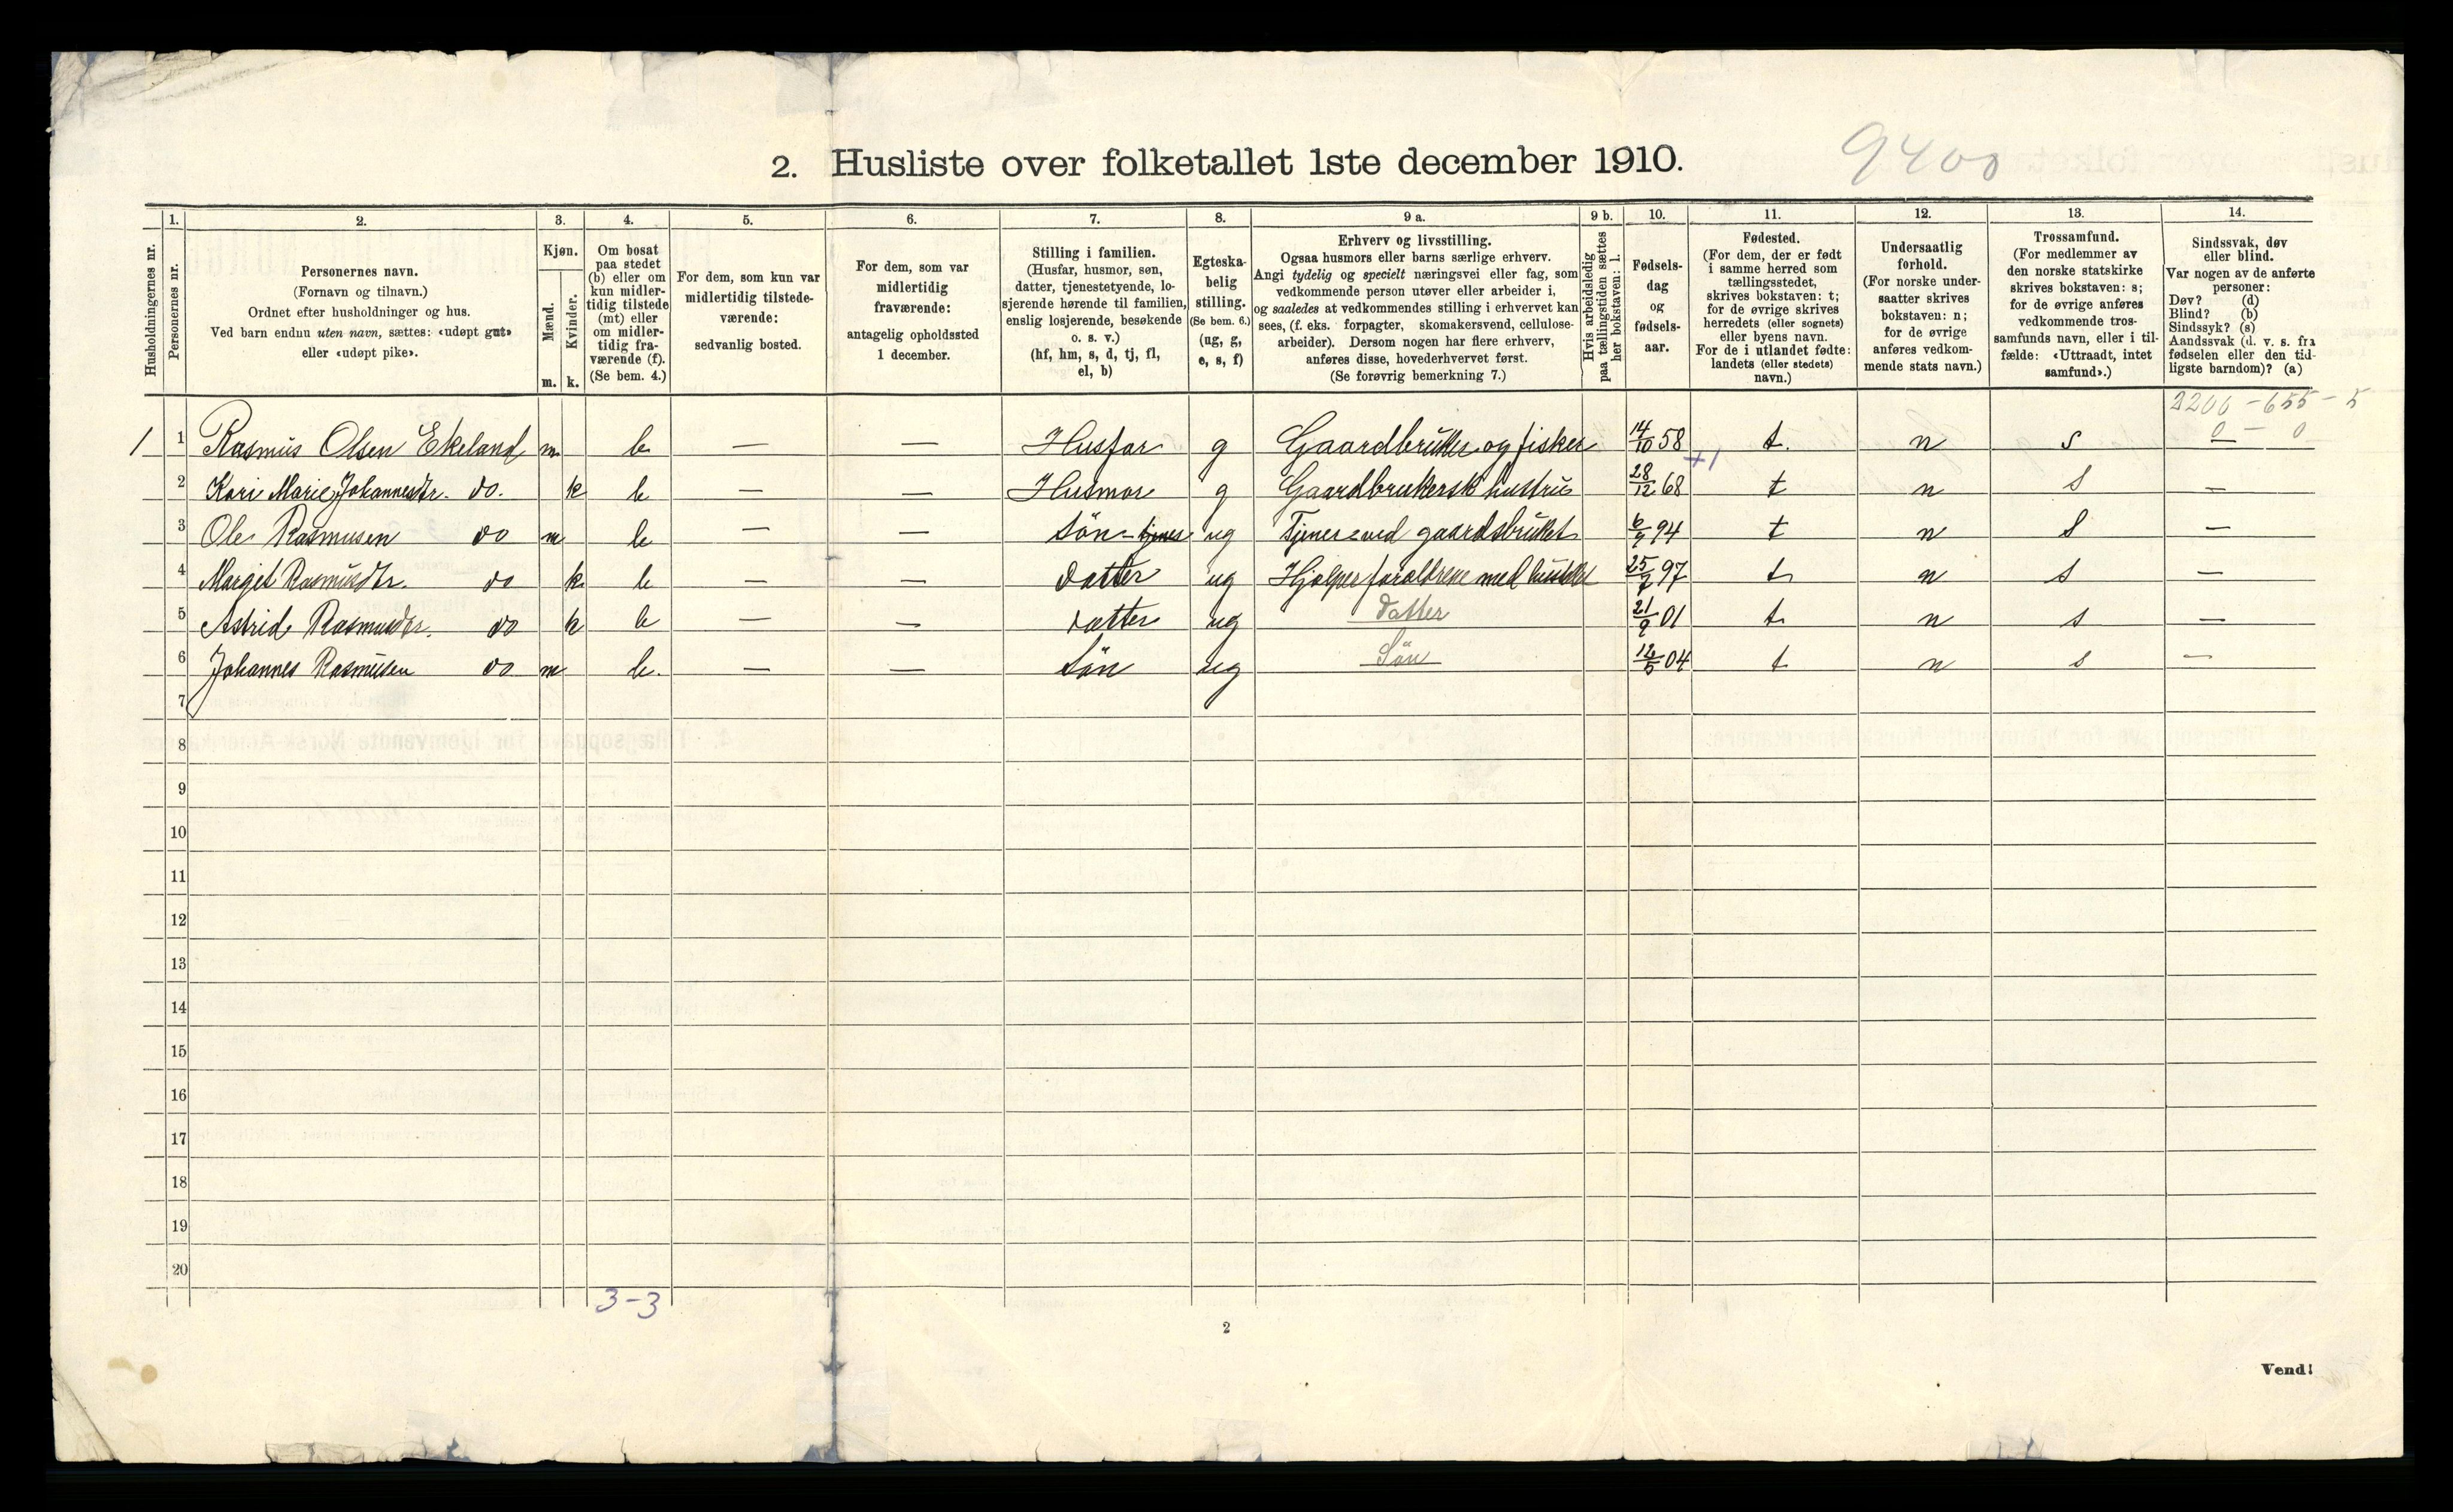 2. Husliste over folketallet 1ste december 1910.
9400
Husholdningernes nr.
1.
Personernes nr.
2.
Personernes navn.
(Fornavn og tilnavn.)
Ordnet efter husholdninger og hus.
Ved barn endnu uten navn, sættes: «udøpt gut»
eller «udøpt pike».
3.
Kjøn.
Mænd.
Kvinder.
m. k.
4.
Om bosat
paa stedet
(b) eller om
kun midler-
tidig tilstede
(mt) eller
om midler-
tidig fra-
værende (f).
(Se bem. 4.)
5.
For dem, som kun var
midlertidig tilstede-
værende:
sedvanlig bosted.
6.
For dem, som var
midlertidig
fraværende:
antagelig opholdssted
1 december.
7.
Stilling i familien.
(Husfar, husmor, søn,
datter, tjenestetyende, lo-
sjerende hørende til familien,
enslig losjerende, besøkende
o. s. v.)
(hf, hm, s, d, tj, fl,
el, b)
8.
Egteska-
belig
stilling.
(Se bem. 6.)
(ug, g,
e, s, f)
9 a.
Erhverv og livsstilling.
Ogsaa husmors eller barns særlige erhverv.
Angi tydelig og specielt næringsvei eller fag, som
vedkommende person utøver eller arbeider i,
og saaledes at vedkommendes stilling i erhvervet kan
sees, (f. eks. forpagter, skomakersvend, cellulose-
arbeider). Dersom nogen har flere erhverv,
anføres disse, hovederhvervet først.
(Se forøvrig bemerkning 7.)
9 b.
Hvis arbeidsledig
paa tællingstiden sættes
her bokstaven: l.
10.
Fødsels-
dag
og
fødsels-
aar.
11.
Fødested.
(For dem, der er født
i samme herred som
tællingsstedet,
skrives bokstaven: t;
for de øvrige skrives
herredets (eller sognets)
eller byens navn.
For de i utlandet fødte:
landets (eller stedets)
navn.)
12.
Undersaatlig
forhold.
(For norske under-
saatter skrives
bokstaven: n;
for de øvrige
anføres vedkom-
mende stats navn.)
13.
Trossamfund.
(For medlemmer av
den norske statskirke
skrives bokstaven: s;
for de øvrige anføres
vedkommende tros-
samfunds navn, eller i til-
fælde: «Uttraadt, intet
samfund».)
14.
Sindssvak, døv
eller blind.
Var nogen av de anførte
personer:
Døv? (d)
Blind? (b)
Sindssyk? (s)
Aandssvak (d. v. s. fra
fødselen eller den tid-
ligste barndom)? (a)
2200 - 655 - 5
0 - 0
1 1 Rasmus Olsen Ekeland m b — — Husfar g Gaardbruker og fisker 14/10 58 t. n s —
+1
2 Kari Marie Johannesdtr. do. k b — — Husmor g Gaardbrukersk hustru 28/12 68 t n s —
3 Ole Rasmusen do m b — — Søn - tjener ug Tjener ved gaardsbruket 6/4 94 t n s —
4 Marget Rasmusdtr. do k b — — datter ug Hjælper forældrene med husstel 25/7 97 t n s —
5 Astrid Rasmusdtr. do k b — — datter ug Datter 21/9 01 t n s —
6 Johannes Rasmusen do m b. — — Søn ug Søn 12/5 04 t n s —
7
8
9
10
11
12
13
14
15
16
17
18
19
20
3-3
2
Vend!